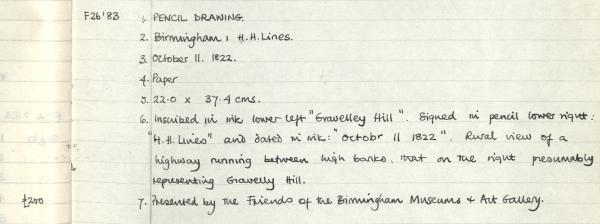 F26'83 1. PENCIL DRAWING.
2. Birmingham: H.H. Lines.
3. October 11. 1822.
4. Paper
5. 22.0 x 37.4 cms.
6. Inscribed in ink lower left "Gravelley Hill". Signed in pencil lower right:
"H.H. Lines" and dated in ink: "Octobr 11 1822". Rural view of a
highway running between high banks, that on the right presumably
representing Gravelly Hill.
£200 7. Presented by the Friends of the Birmingham Museums + Art Gallery.